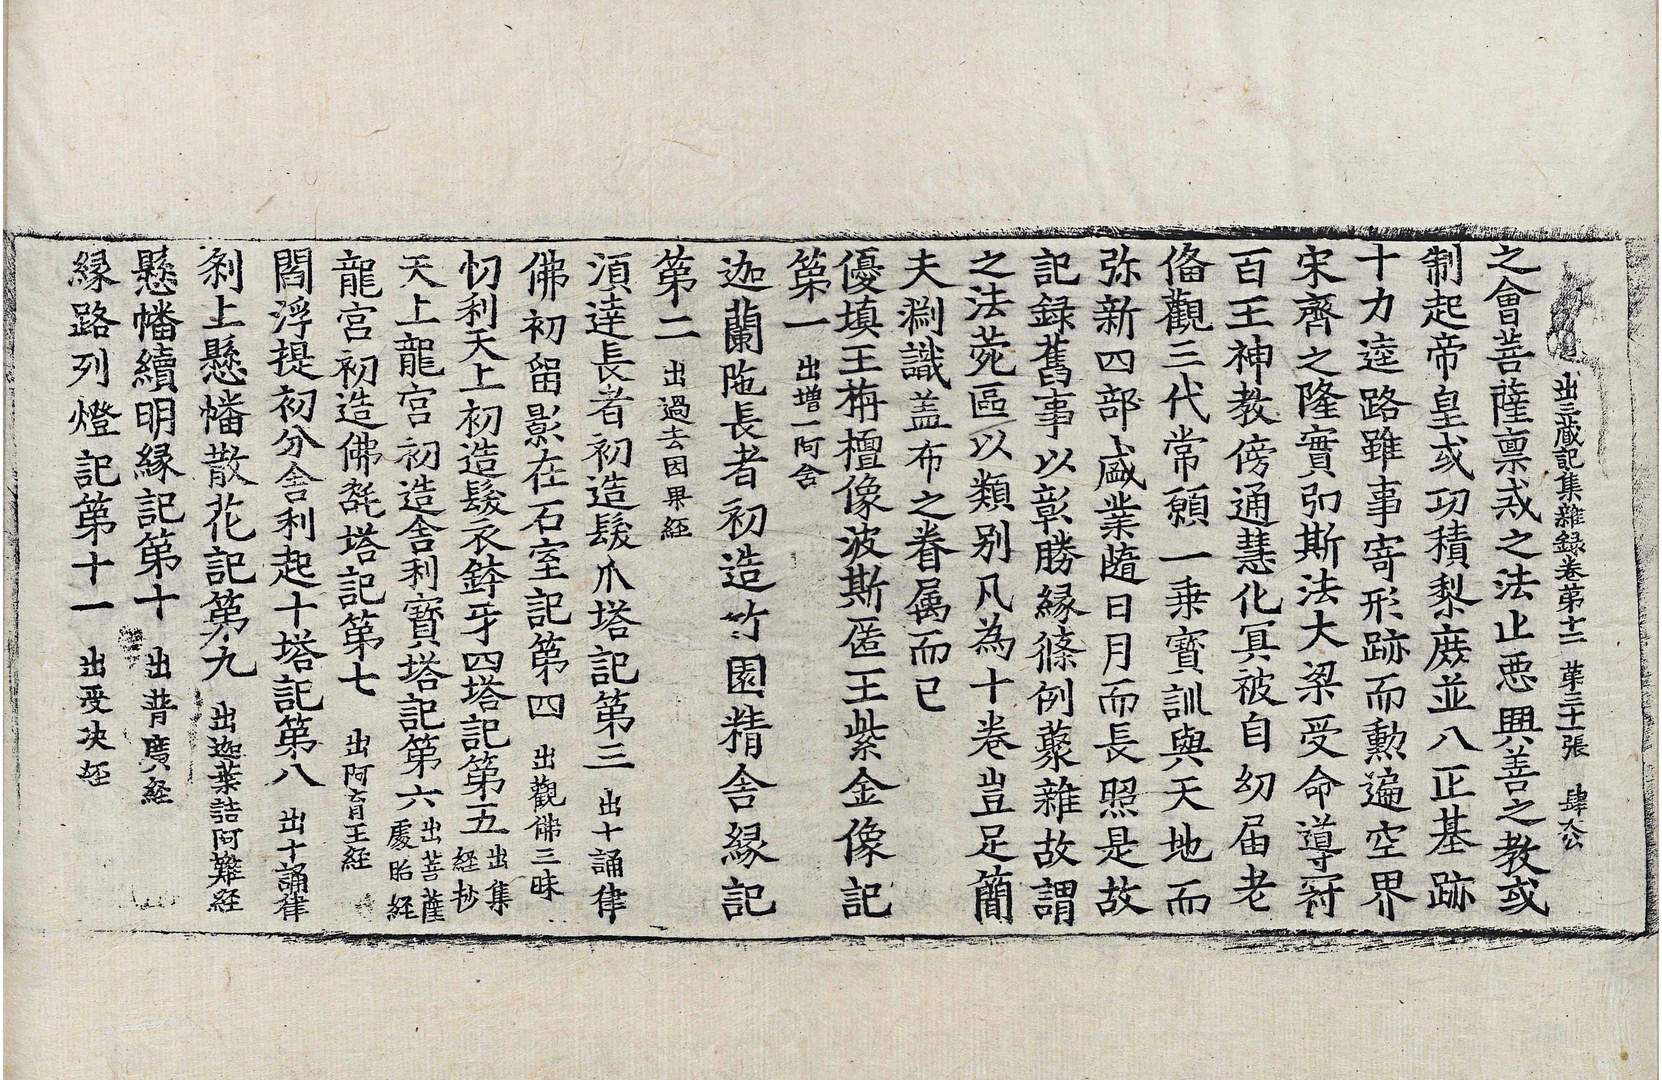 出三藏記集雜録卷第十二 第三十張 肆公
之會菩薩禀戒之法止惡興善之教或
制起帝皇或功積黎庶並八正基跡
十力逵路雖事寄形跡而勳遍空界
宋齊之隆實弘斯法大梁受命導冠
百王神教傍通慧化冥被自幼届老
俻觀三代常願一乗寳訓與天地而
弥新四部盛業隨日月而長照是故
記録舊事以彰勝縁條例叢雜故謂
之法菀區以類别凡為十卷豈足簡
夫淵識盖布之眷属而已
優填王栴檀像波斯匿王紫金像記
第一 出增一阿含
迦蘭陁長者初造竹園精舍縁記
第二 出過去因果經
湏達長者初造髮爪塔記第三 出十誦律
佛初留影在石室記第四 出觀佛三昧
忉利天上初造髮衣鉢牙四塔記第五 出集經抄
天上龍宫初造舍利寳塔記第六 出菩薩處胎經
龍宫初造佛髭塔記第七 出阿育王經
閻浮提初分舍利起十塔記第八 出十誦律
刹上懸幡散花記第九 出迦葉詰阿難經
懸幡續明縁記第十 出普廣經
縁路列燈記第十一 出受决經